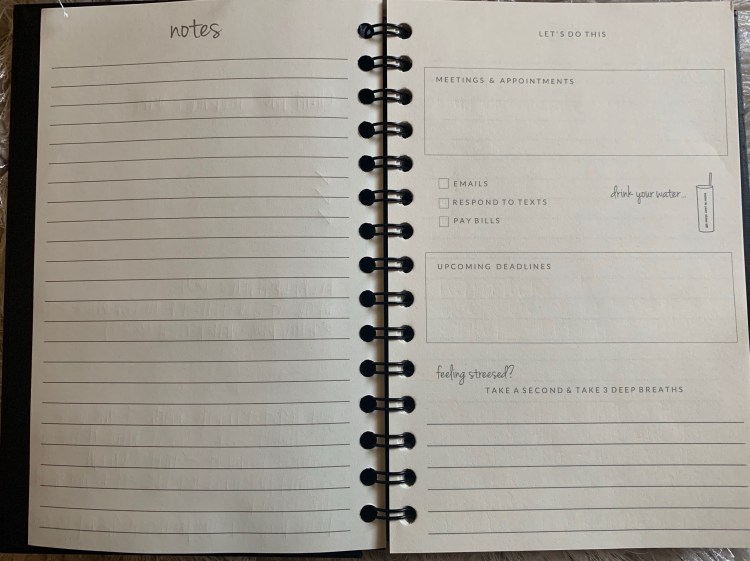 notes
LET'S DO THIS
MEETINGS & APPOINTMENTS
EMAILS
RESPOND TO TEXTS
PAY BILLS
drink your water...
UPCOMING DEADLINES
feeling streesed?
TAKE A SECOND & TAKE 3 DEEP BREATHS